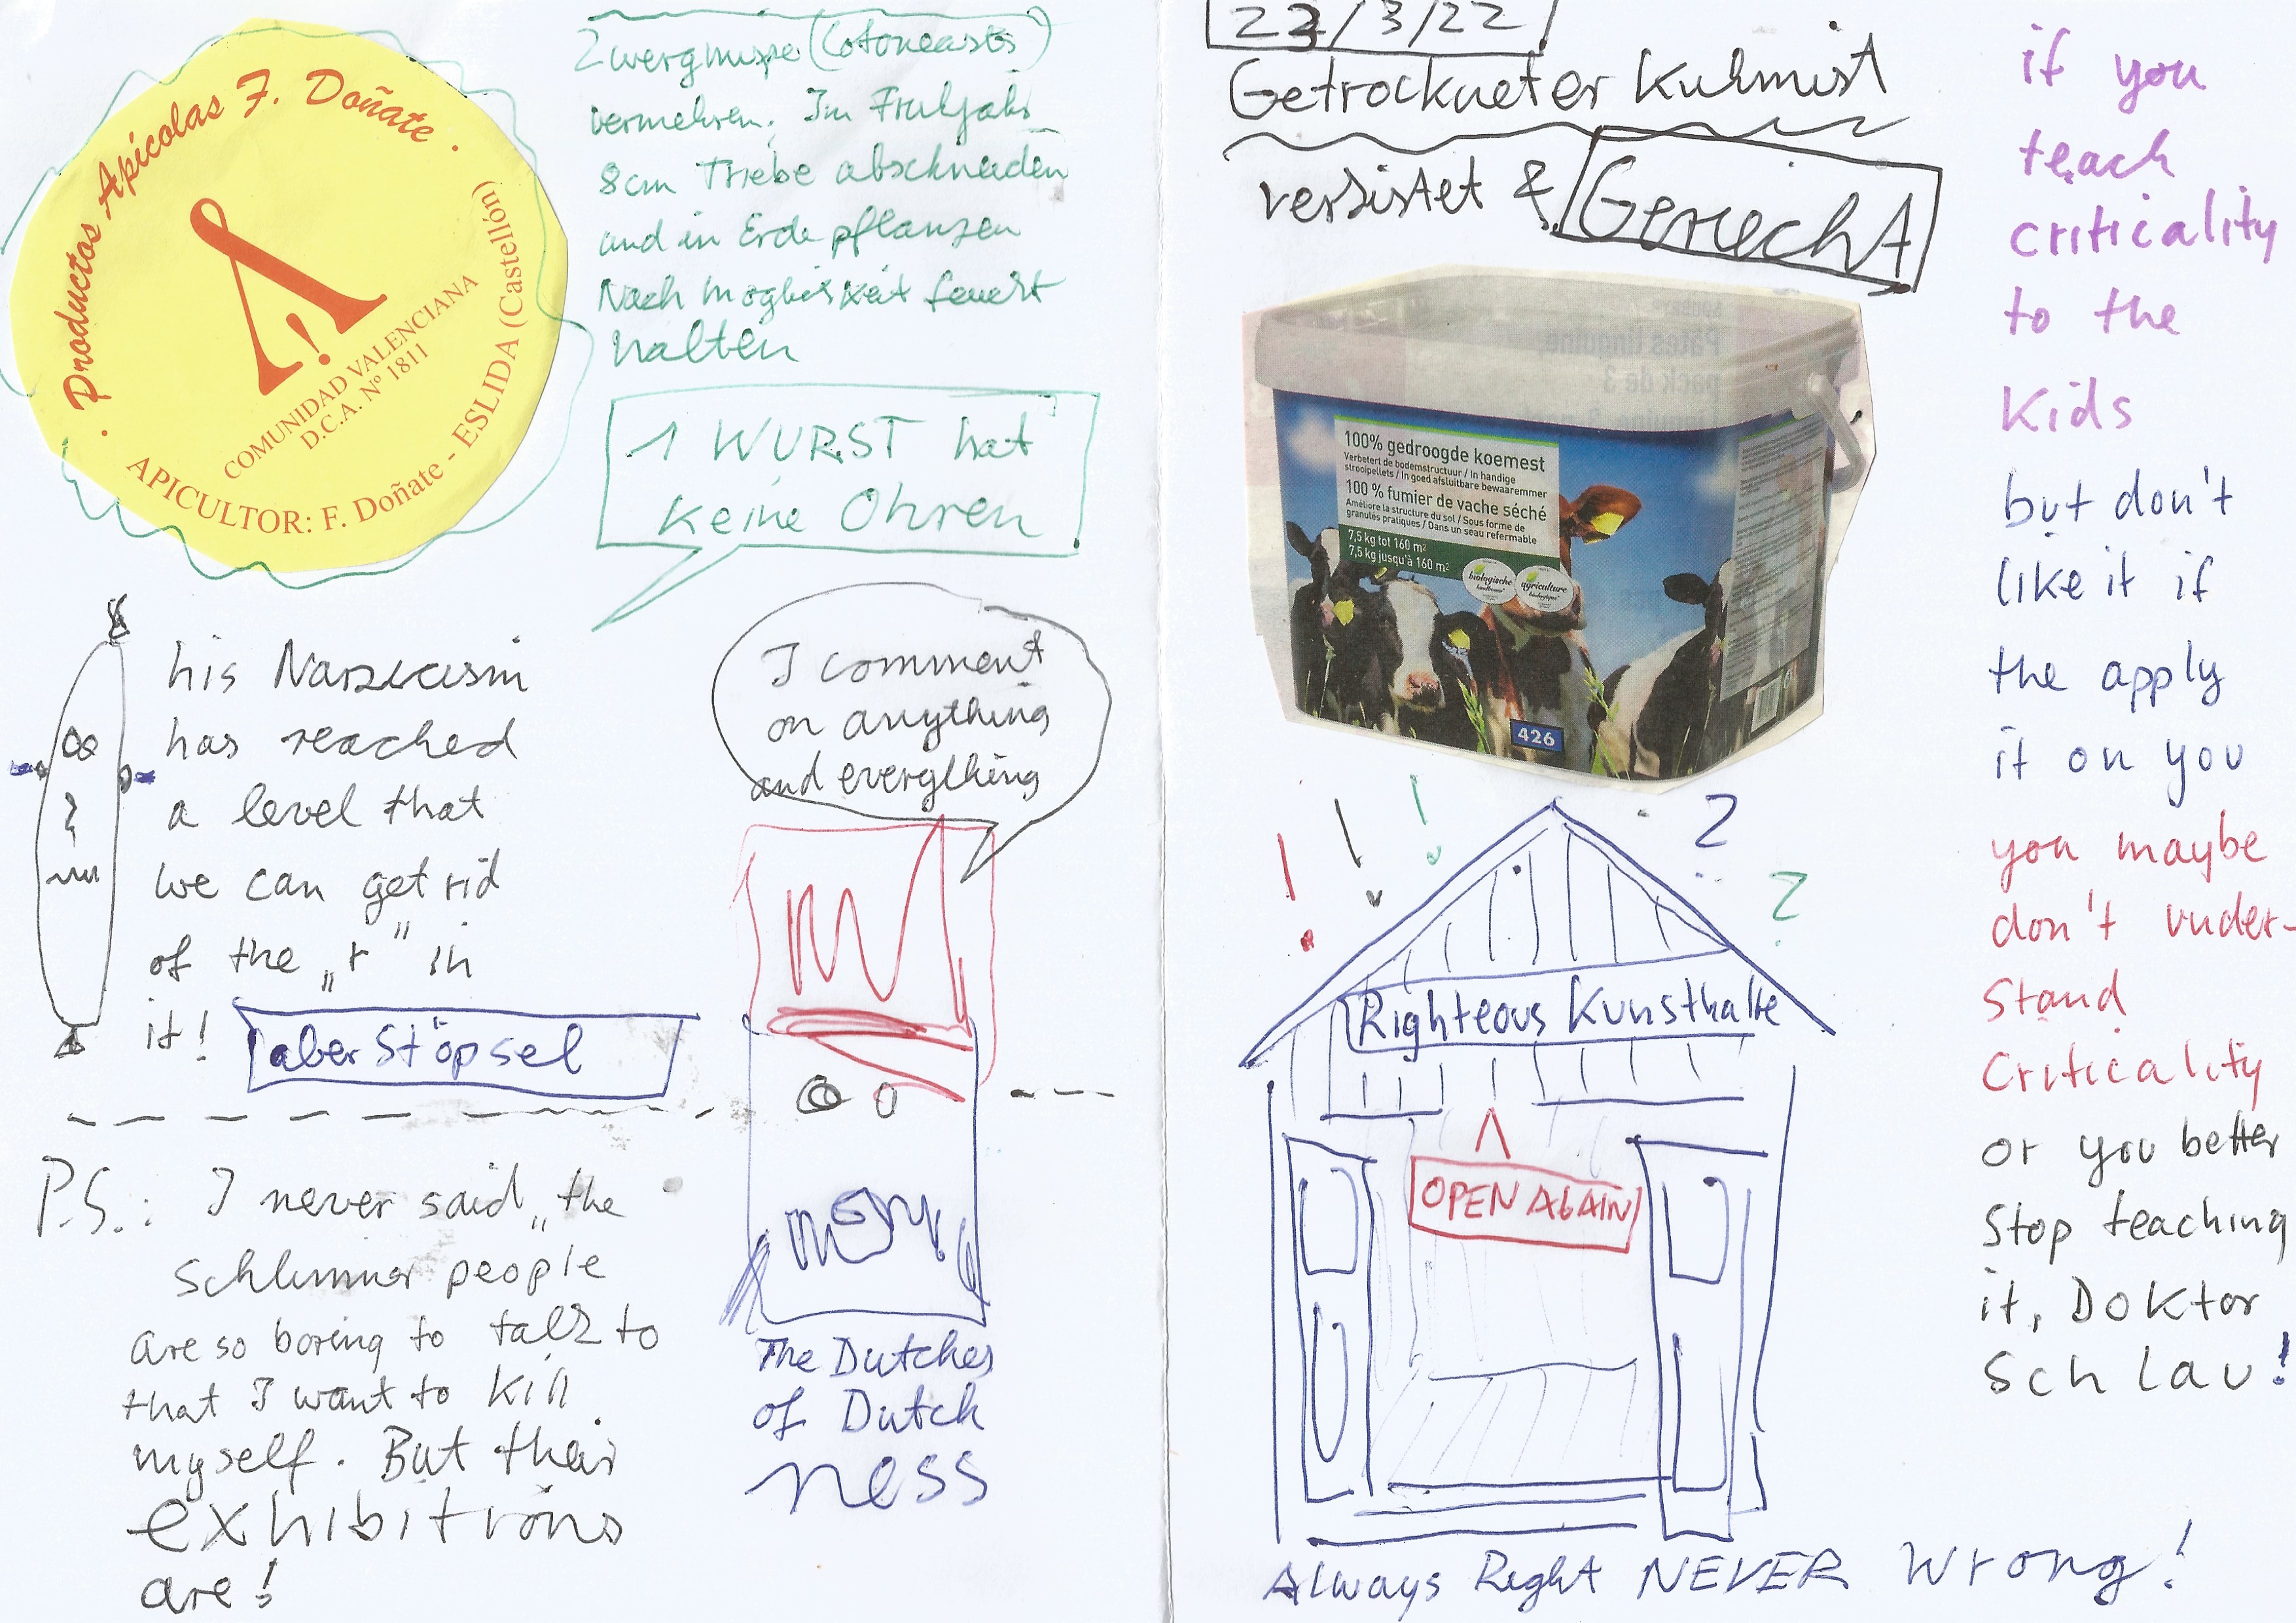 · Productos Apícolas F. Doñate ·
COMUNIDAD VALENCIANA
D.C.A. Nº 1811
APICULTOR: F. Doñate - ESLIDA (Castellón)
Zwergmispe (Cotoneaster)
vermehren: Im Frühjahr
8cm Triebe abschneiden
und in Erde pflanzen
Nach Möglichkeit feucht
halten
1 WURST hat
keine Ohren
his Narzicism
has reached
a level that
we can get rid
of the „r" in
it!
aber Stöpsel
I comment
on anything
and everything
P.S.: I never said „the
Schlimmer people
are so boring to talk to
that I want to kill
myself. But their
exhibitions
are!
The Dutches
of Dutch
ness
22/3/22
Getrockneter Kuhmist
&
Gerecht
Pâtes linguine,
pack de 3
100% gedroogde koemest
Verbetert de bodemstructuur / In handige
strooipellets / In goed afsluitbare bewaaremmer
100 % fumier de vache séché
Améliore la structure du sol / Sous forme de
granulés pratiques / Dans un seau refermable
7,5 kg tot 160 m²
7,5 kg jusqu'à 160 m²
biologische
agriculture
biologique
426
! ! ! ? ?
Righteous Kunsthalle
OPEN AGAIN
Always Right NEVER Wrong!
if you
teach
criticality
to the
Kids
but don't
like it if
the apply
it on you
you maybe
don't under-
stand
Criticality
or you better
stop teaching
it, Doktor
Schlau!